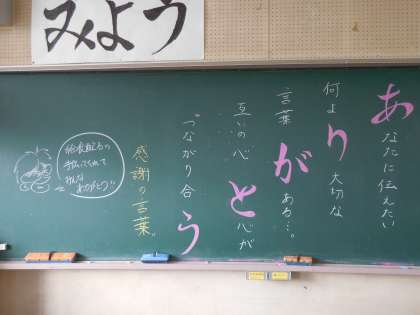 みよう
あなたに伝えたい
何より大切な
言葉がある…。
互いの心と心が
つながり合う
感謝の言葉。
給食週間の
手伝ってくれて
みんな
ありがとう!!